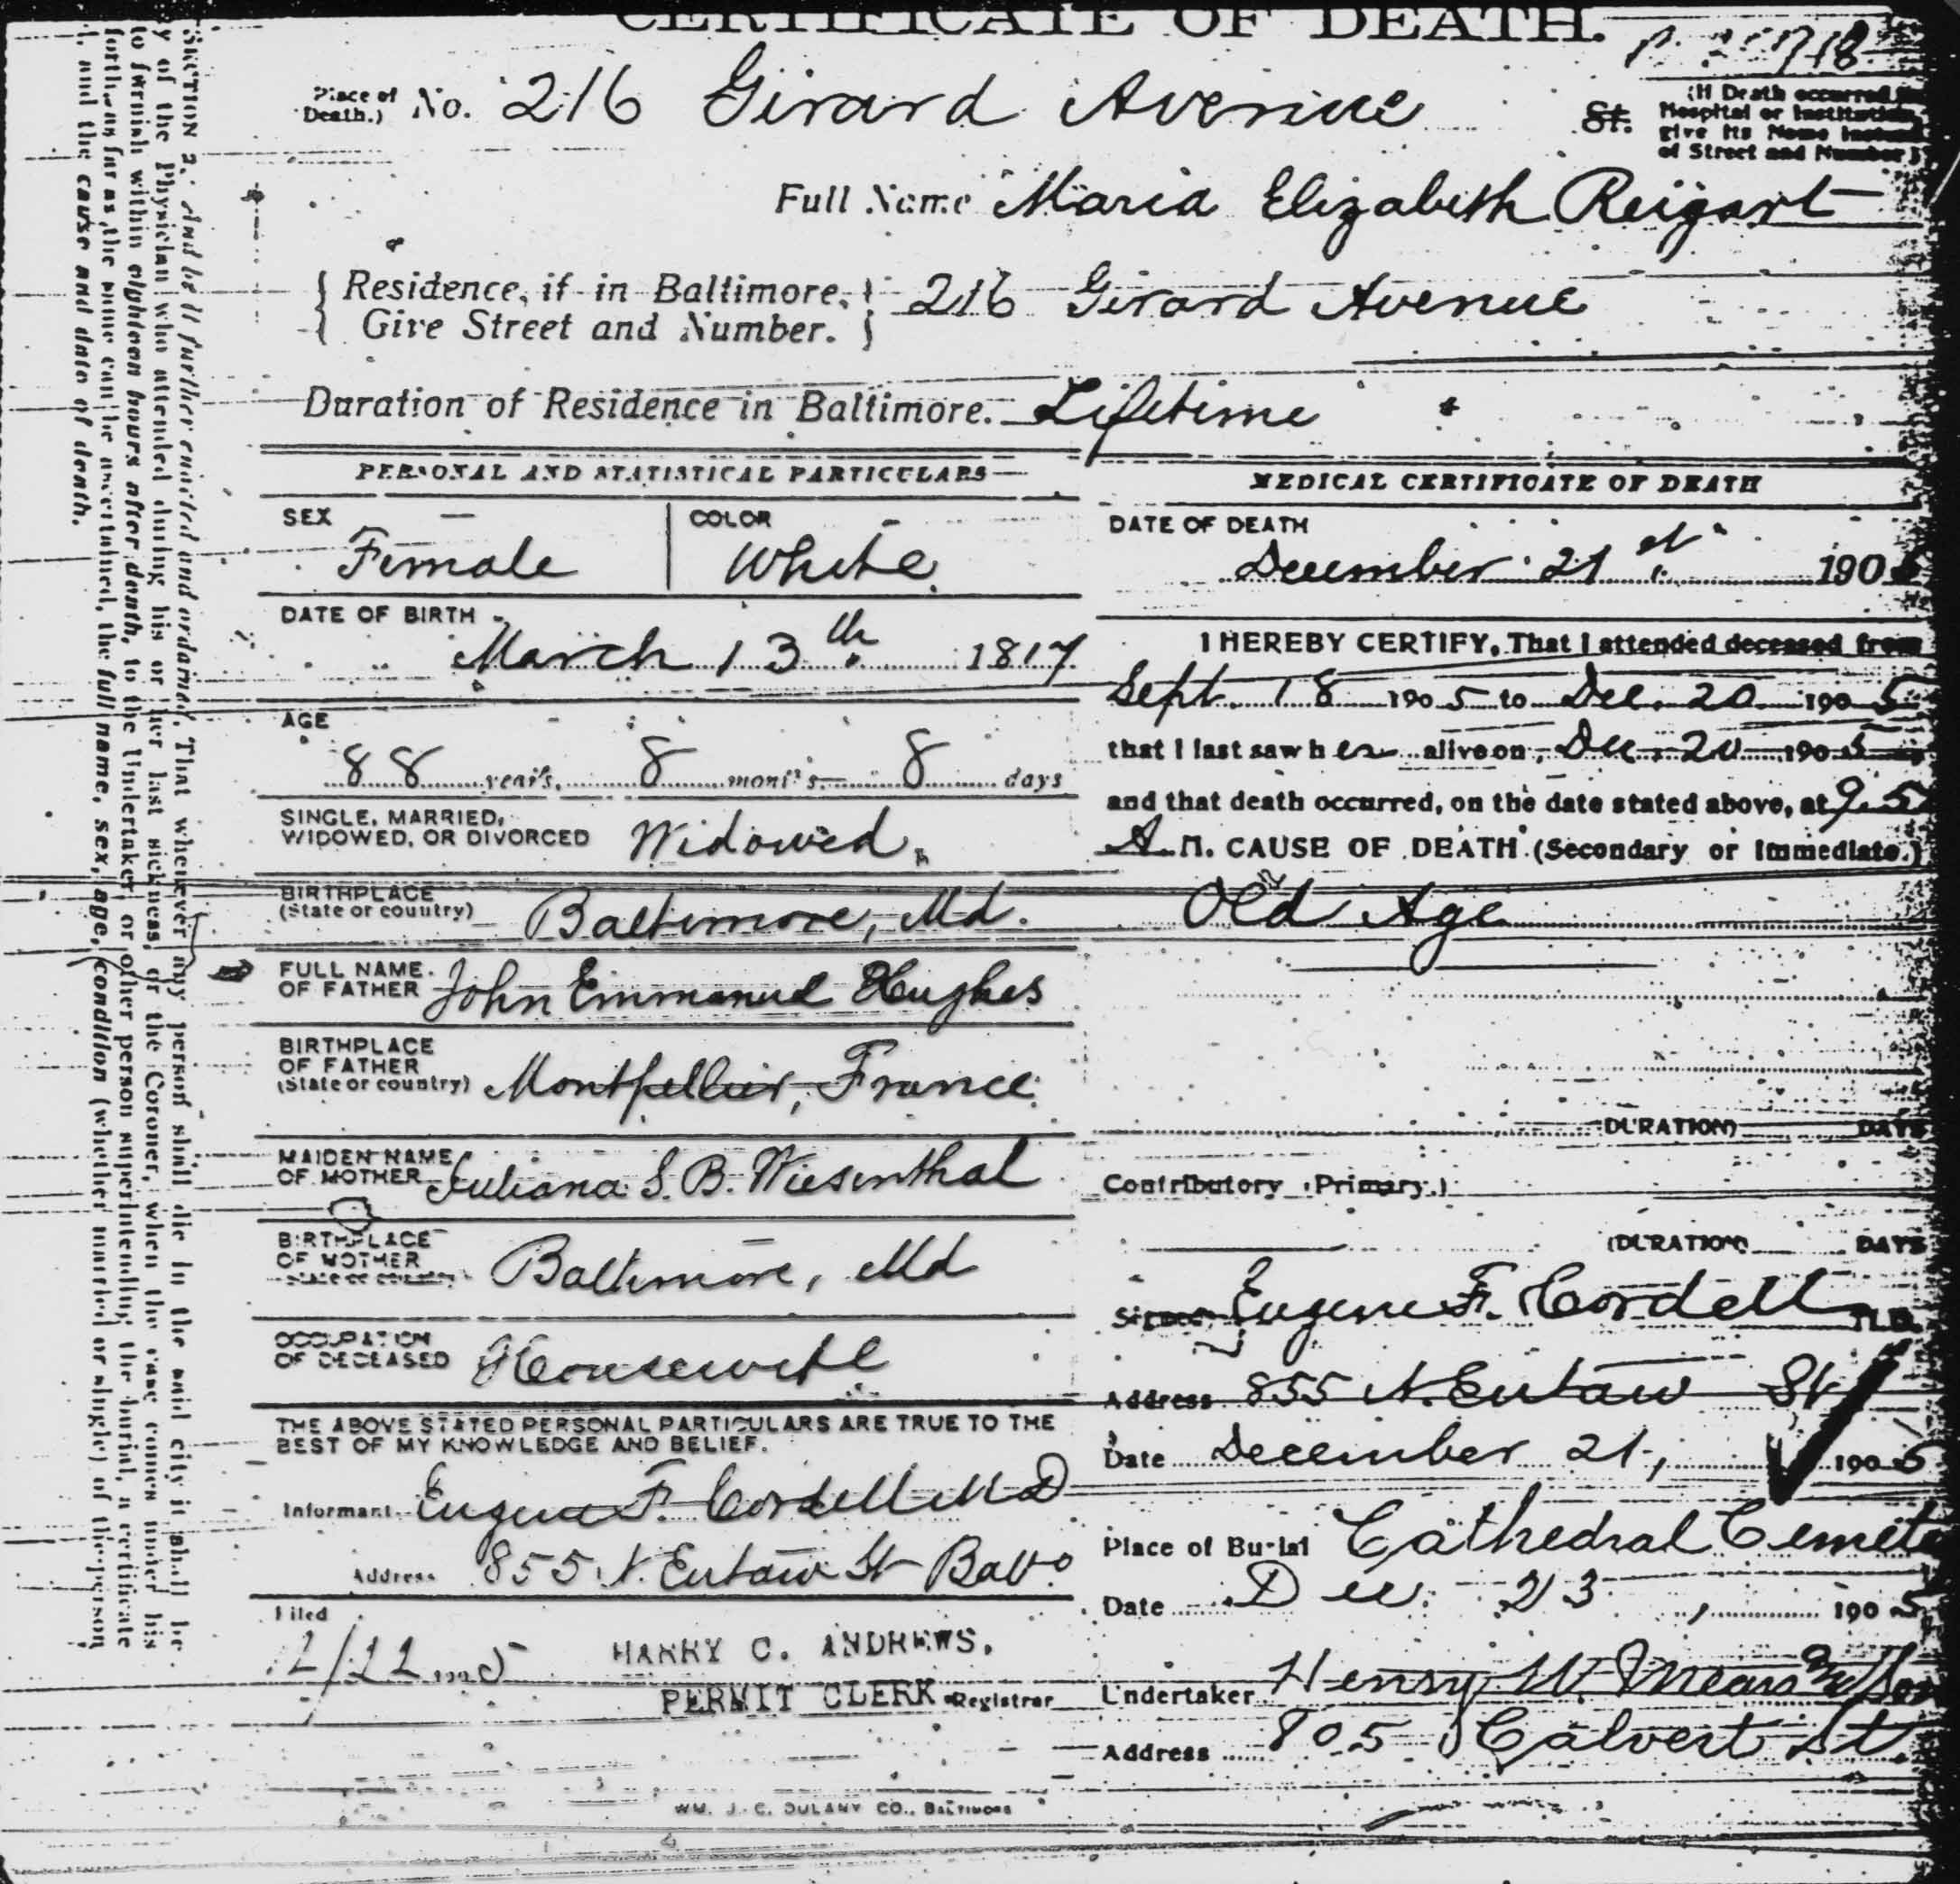 CERTIFICATE OF DEATH.
Place of Death.) No. 216 Girard Avenue St.
(If Death occurred
Hospital or Institution,
give its Name instead
of Street and Number.)
Full Name Maria Elizabeth Reigart
{ Residence, if in Baltimore, } 216 Girard Avenue
{ Give Street and Number. }
Duration of Residence in Baltimore. Lifetime
PERSONAL AND STATISTICAL PARTICULARS
SEX
Female
COLOR
White
DATE OF BIRTH
March 13th 1817
AGE
88 years, 8 months 8 days
SINGLE, MARRIED,
WIDOWED, OR DIVORCED Widowed.
BIRTHPLACE
(State or country) Baltimore, Md.
FULL NAME
OF FATHER John Emmanuel Hughes
BIRTHPLACE
OF FATHER
(State or country) Montpellier, France
MAIDEN NAME
OF MOTHER Juliana S. B. Wiesenthal
BIRTHPLACE
OF MOTHER
(State or country) Baltimore, Md
OCCUPATION
OF DECEASED Housewife
THE ABOVE STATED PERSONAL PARTICULARS ARE TRUE TO THE
BEST OF MY KNOWLEDGE AND BELIEF.
Informant Eugene F. Cordell M D
Address 855 N. Eutaw St Balto
Filed
HARRY C. ANDREWS,
PERMIT CLERK Registrar
WM. J. C. DULANY CO., BALTIMORE
MEDICAL CERTIFICATE OF DEATH
DATE OF DEATH
December 21st 190
I HEREBY CERTIFY, That I attended deceased from
Sept. 18 1905 to Dec. 20 1905
that I last saw her alive on Dec. 20 1905
and that death occurred, on the date stated above, at 9.5
A. M. CAUSE OF DEATH (Secondary or Immediate.)
Old Age
(DURATION) DAYS
Contributory (Primary.)
(DURATION) DAYS
Signed Eugene F. Cordell M.D.
Address 855 N. Eutaw St
Date December 21, 1905
Place of Burial Cathedral Cemete
Date Dec. 23, 1905
Undertaker Henry W. Mears & Son
Address 805 N Calvert St.
SECTION 2. And be it further enacted and ordained, That whenever any person shall die in the said city it shall be
y of the Physician who attended during his or her last sickness, or the Coroner, when the case comes under his
to furnish within eighteen hours after death, to the Undertaker, or other person superintending the burial, a certificate
forth, as far as the same can be ascertained, the full name, sex, age, condition (whether married or single) of the person
, and the cause and date of death.